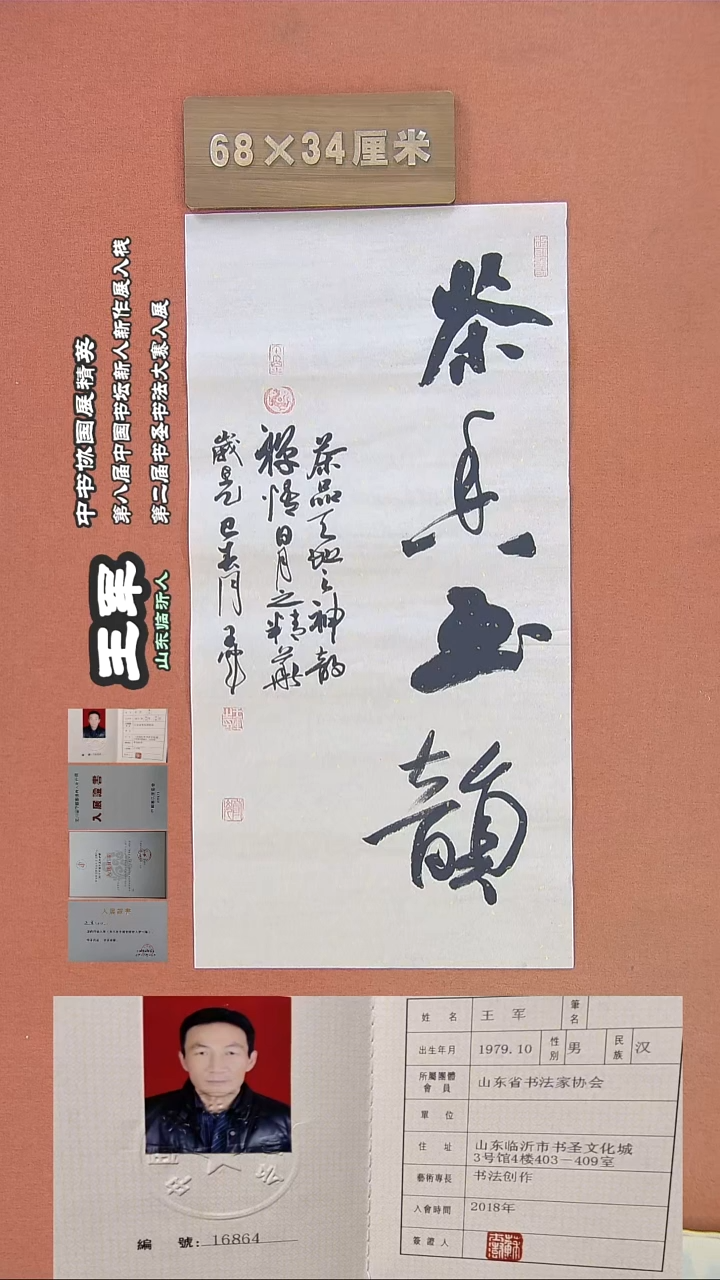 68×34厘米
茶香书韵
茶品天地之神韵
禅悟日月之精华
岁是乙巳春月 王军
中书协国展精英
第八届中国书坛新人新作展入展
第二届书圣书法大赛入展
王军
山东临沂人
入展證書
姓 名 王 军 筆名
出生年月 1979.10 性別 男 民族 汉
所屬團體會員 山东省书法家协会
單 位
住 址 山东临沂市书圣文化城
3号馆4楼403－409室
藝術專長 书法创作
入會時間 2018年
簽證人
編 號: 16864